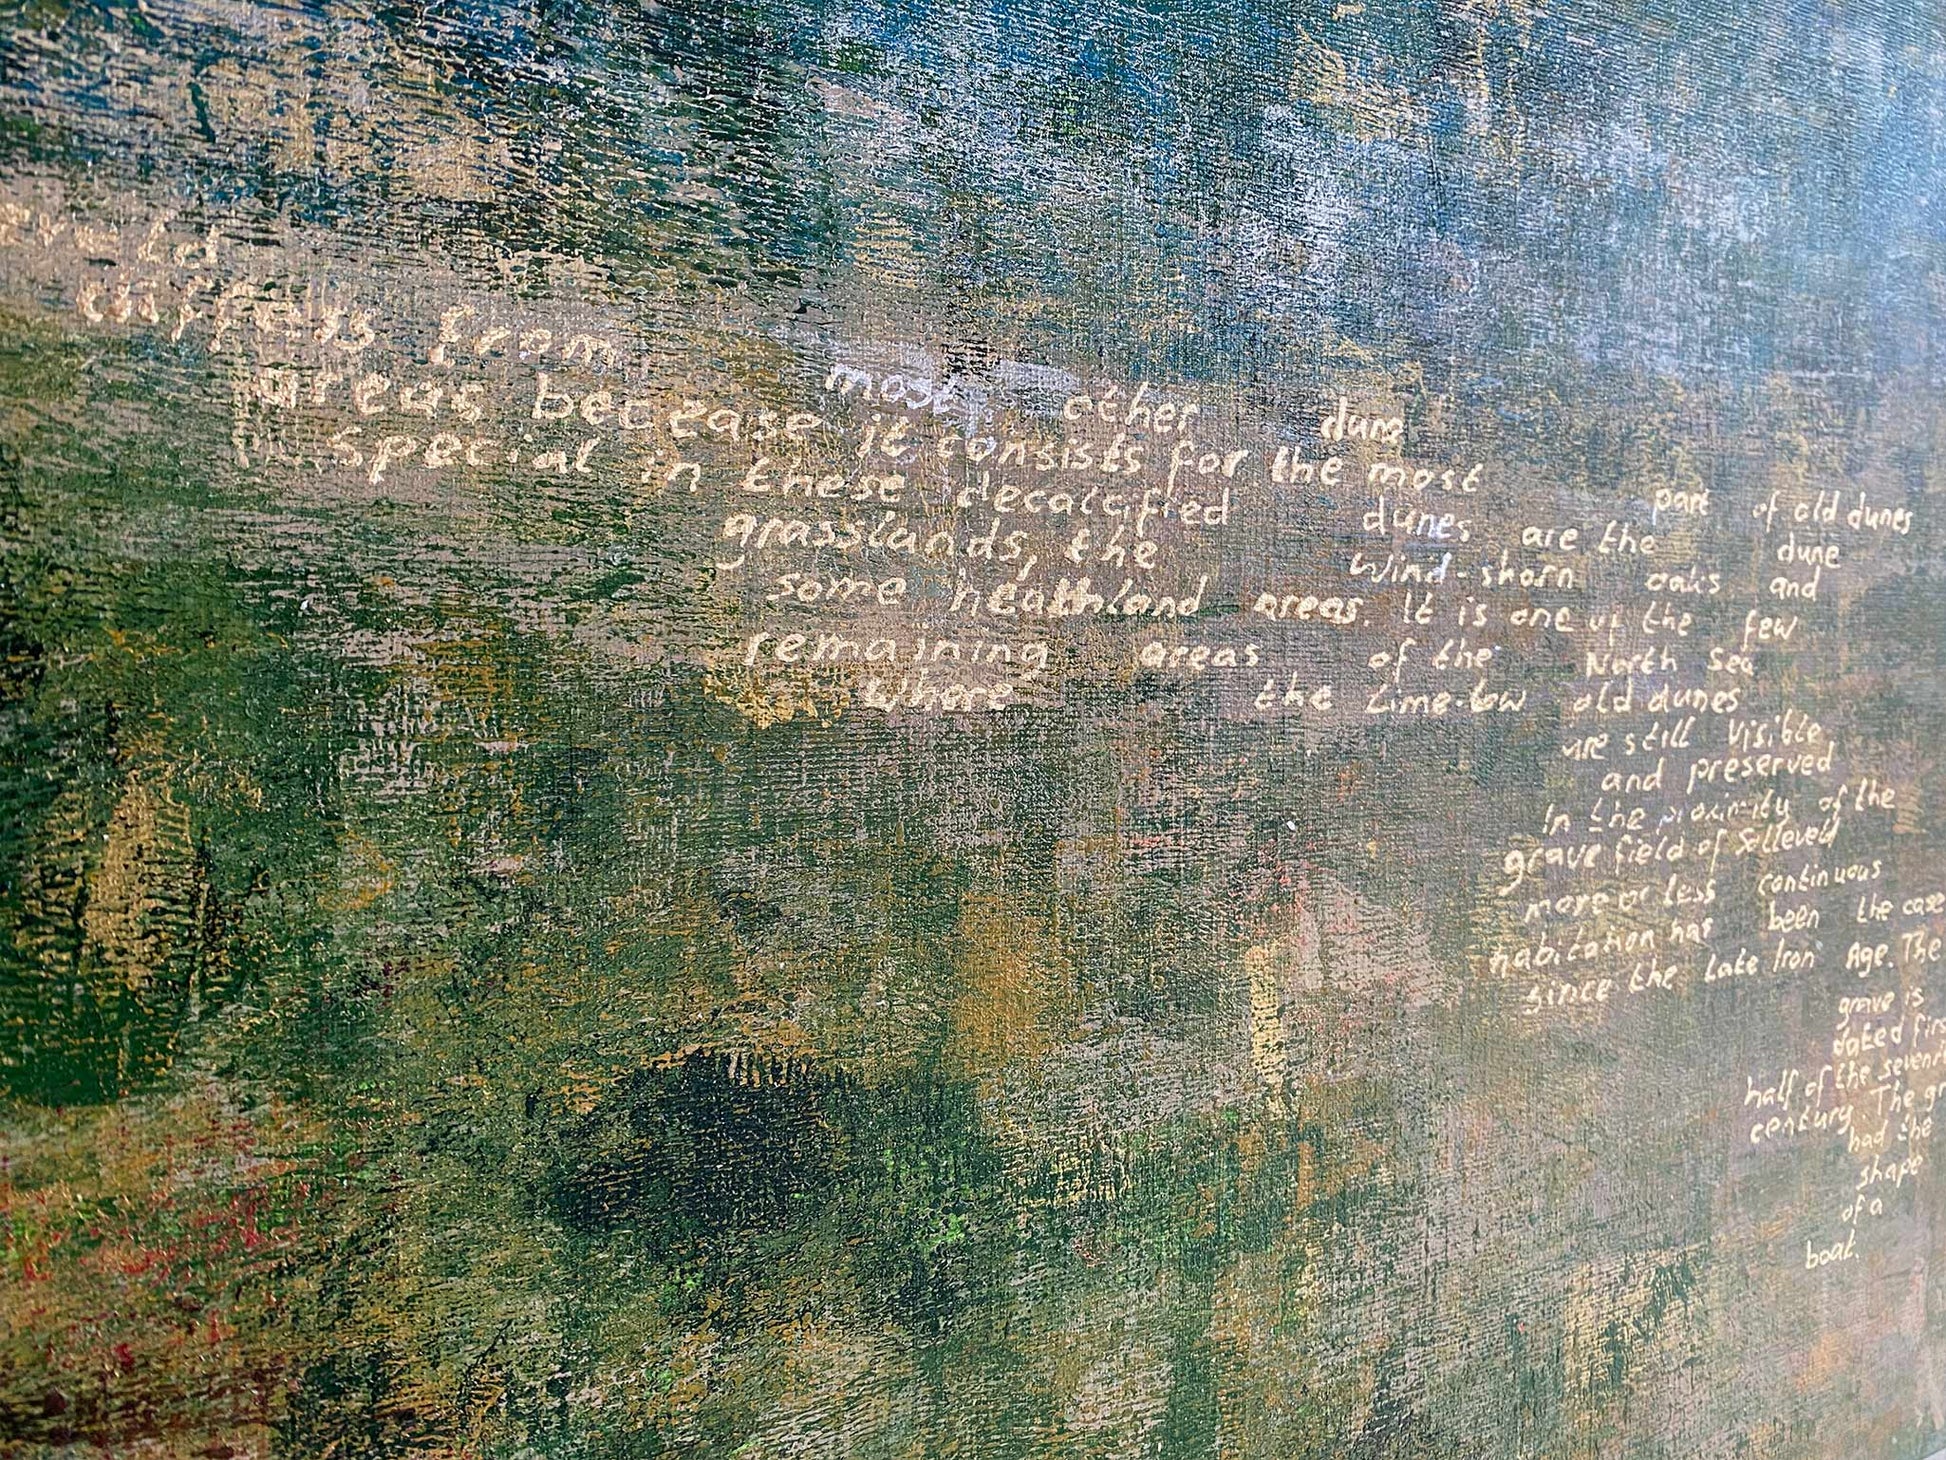 differs from most other dune
areas because it consists for the most part of old dunes
special in these decalcified dunes are the dune
grasslands, the wind-shorn oaks and
some heathland areas. It is one of the few
remaining areas of the North Sea
where the lime-low old dunes
are still visible
and preserved
In the proximity of the
grave field of Solleveld
more or less continuous
habitation has been the case
since the late Iron Age. The
grave is
dated firs
half of the sevent
century. The gr
had the
shape
of a
boat.